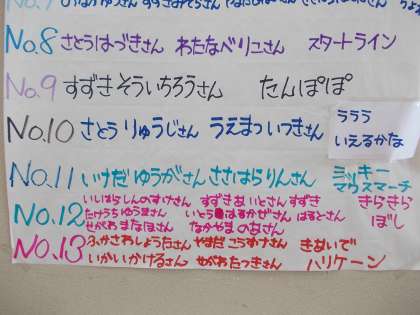 No.8 さとうはづきさん わたなべりこさん スタートライン
No.9 すずきそういちろうさん たんぽぽ
No.10 さとうりゅうじさん うえまついつきさん
ららら
いえるかな
No.11 いけだゆうがさん ささはらりんさん ミッキー
マウスマーチ
No.12 いしはらしんのすけさん すずきあいとさん すずき
たけうちゆうまさん いとうはるかぜさん はるとさん
せがわまなほさん なかやまのあさん
きらきら
ぼし
No.13 ふかさわしょうたさん やまだこうすけさん きあいで
いかいかけるさん せがわたつきさん ハリケーン